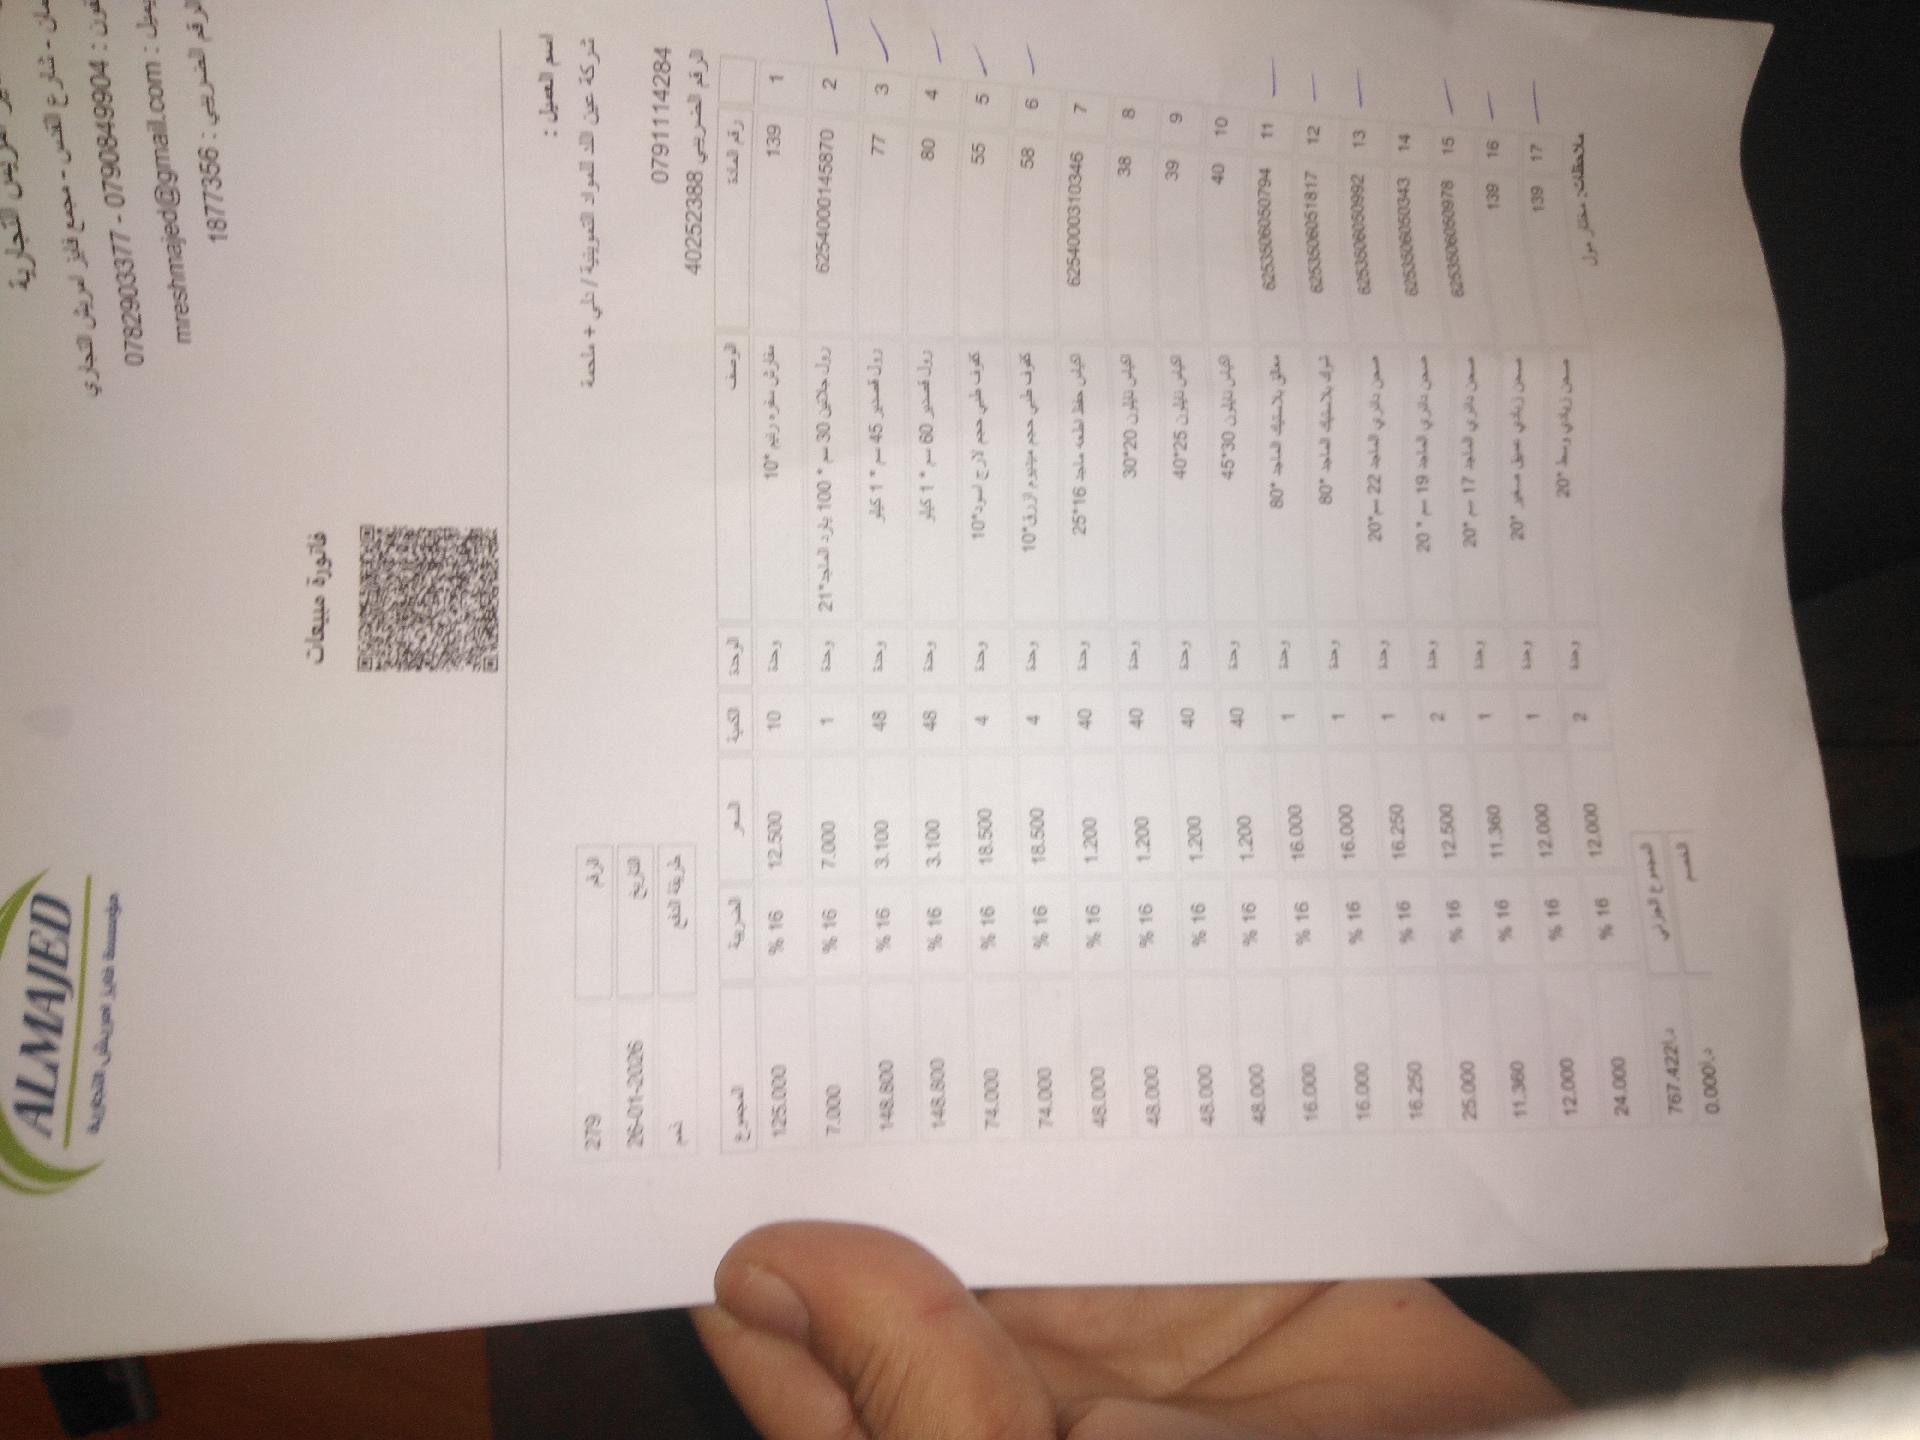 ALMAJED
مؤسسة فايز امريش التجارية
امريش التجارية
شارع القدس - مجمع فايز امريش التجاري
0782903377 - 0790849904 :
mreshmajed@gmail.com :
الرقم الضريبي : 18777356
فاتورة مبيعات
اسم العميل :
شركة عين اللد للمواد التموينية / دلي + ملحمة
0791114284
الرقم الضريبي 402523888
الرقم 279
التاريخ 26-01-2026
طريقة الدفع ذمم
رقم المادة الوصف الوحدة الكمية السعر الضريبة المجموع
1 139 مفارش سفره رنيم *10 وحدة 10 12.500 % 16 125.000
2 6254000145870 رول جلاتين 30 سم * 100 يارد الماجد*21 وحدة 1 7.000 % 16 7.000
3 77 رول قصدير 45 سم * 1 كيلو وحدة 48 3.100 % 16 148.800
4 80 رول قصدير 60 سم * 1 كيلو وحدة 48 3.100 % 16 148.800
5 55 كفوف طبي حجم لارج اسود*10 وحدة 4 18.500 % 16 74.000
6 58 كفوف طبي حجم ميديوم ازرق*10 وحدة 4 18.500 % 16 74.000
7 6254000310346 اكياس حفظ اطعمه ماجد 16*25 وحدة 40 1.200 % 16 48.000
8 38 اكياس نايلون 20*30 وحدة 40 1.200 % 16 48.000
9 39 اكياس نايلون 25*40 وحدة 40 1.200 % 16 48.000
10 40 اكياس نايلون 30*45 وحدة 40 1.200 % 16 48.000
11 6253506050794 معالق بلاستيك الماجد *80 وحدة 1 16.000 % 16 16.000
12 6253506051817 شوك بلاستيك الماجد *80 وحدة 1 16.000 % 16 16.000
13 6253506050992 صحن دائري الماجد 22 سم*20 وحدة 1 16.250 % 16 16.250
14 6253506050343 صحن دائري الماجد 19 سم * 20 وحدة 2 12.500 % 16 25.000
15 6253506050978 صحن دائري الماجد 17 سم *20 وحدة 1 11.360 % 16 11.360
16 139 صحن زبادي عميق صغير *20 وحدة 1 12.000 % 16 12.000
17 139 صحن زبادي وسط *20 وحدة 2 12.000 % 16 24.000
ملاحظات: مختار مول
المجموع الجزئي د.ا767.422
الخصم د.ا0.000